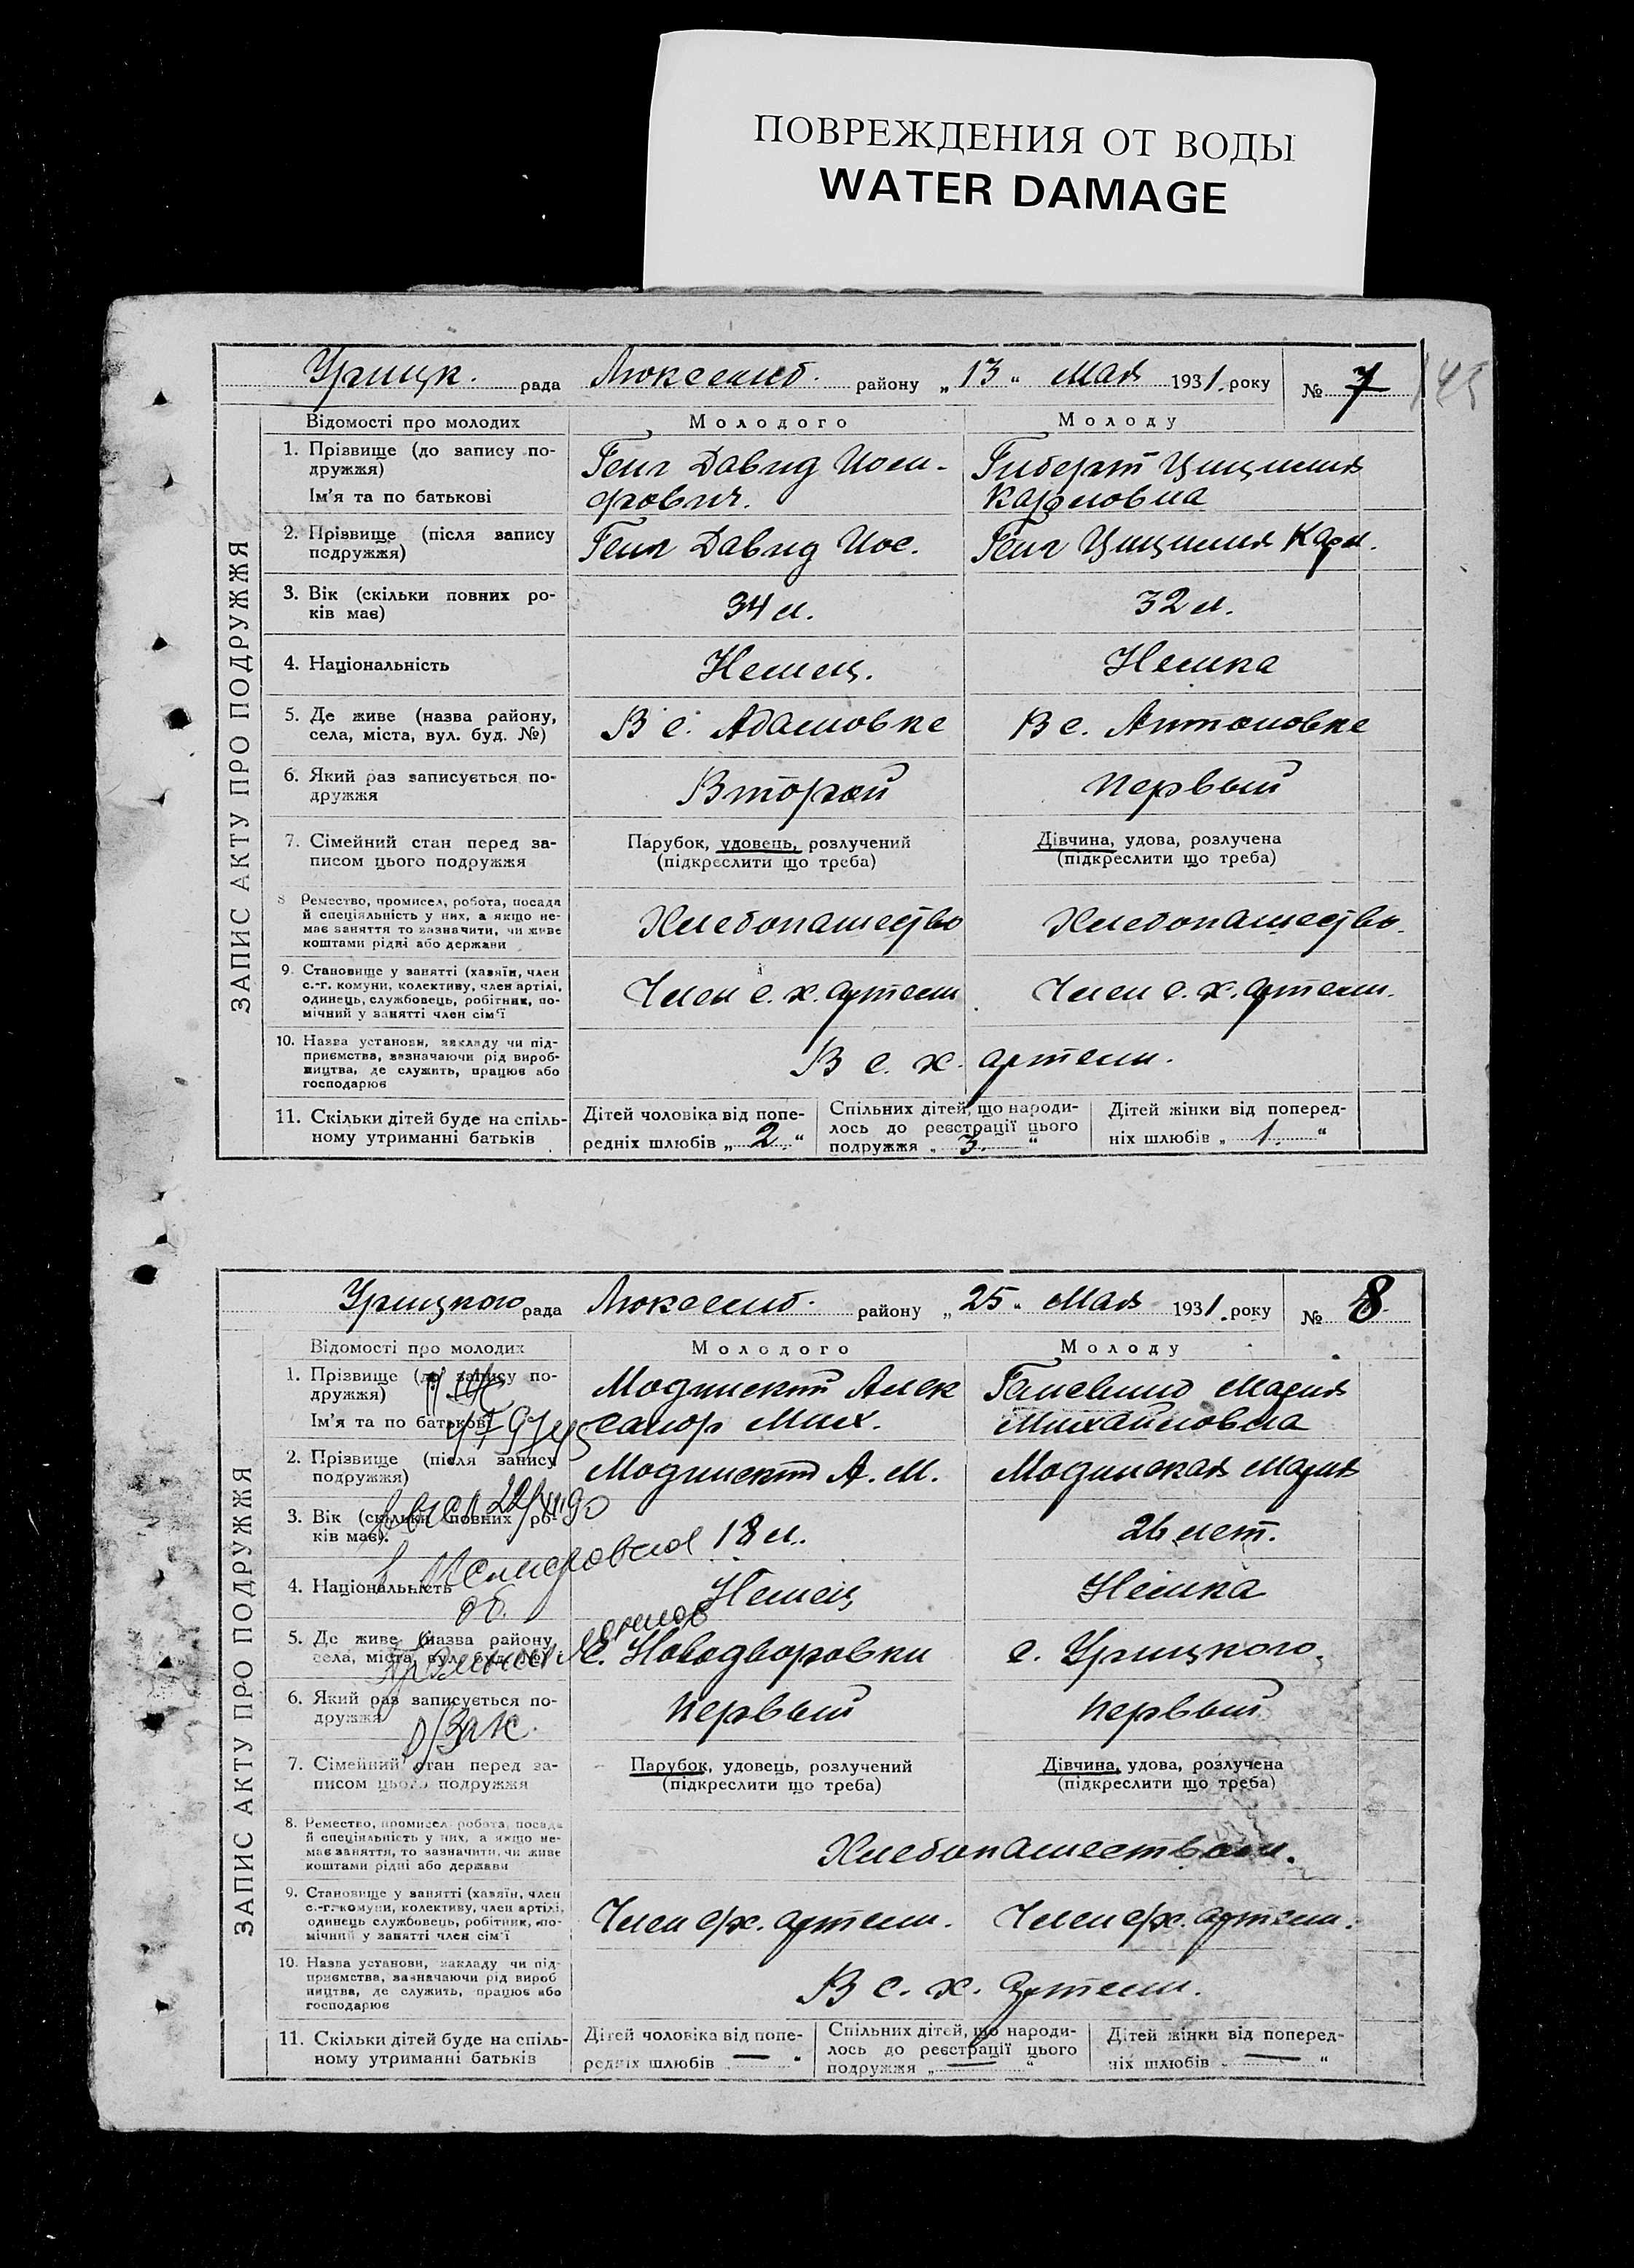 ПОВРЕЖДЕНИЯ ОТ ВОДЫ
WATER DAMAGE
Урицк. рада Люксемб. району „13“ Мая 1931. року № 7
145
ЗАПИС АКТУ ПРО ПОДРУЖЖЯ
Відомості про молодих Молодого Молоду
1. Прізвище (до запису по-
дружжя)
Ім'я та по батькові
Гейг Давид Иоси-
фович.
Гиберт Цицилия
Карловна
2. Прізвище (після запису
подружжя)
Гейг Давид Иос.
Гейг Цицилия Карл.
3. Вік (скільки повних ро-
ків має)
34 л.
32 л.
4. Національність
Немец.
Немка
5. Де живе (назва району,
села, міста, вул. буд. №)
В с. Адамовке
В с. Антоновке
6. Який раз записується по-
дружжя
Второй
Первый
7. Сімейний стан перед за-
писом цього подружжя
Парубок, удовець, розлучений
(підкреслити що треба)
Дівчина, удова, розлучена
(підкреслити що треба)
8 Ремество, промисел, робота, посада
й спеціяльність у них, а якщо не-
має заняття то зазначити, чи живе
коштами рідні або держави
Хлебопашество
Хлебопашество.
9. Становище у занятті (хазяїн, член
с.-г. комуни, колективу, член артілі,
одинець, службовець, робітник, по-
мічний у занятті член сім'ї
Член с. х. артели
Член с. х. артели.
10. Назва установи, закладу чи під-
приємства, зазначаючи рід вироб-
ництва, де служить, працює або
господарює
В с. х. артели.
11. Скільки дітей буде на спіль-
ному утриманні батьків
Дітей чоловіка від попе-
редніх шлюбів „2“
Спільних дітей, що народи-
лось до реєстрації цього
подружжя „3.“
Дітей жінки від поперед-
ніх шлюбів „1.“
Урицкого рада Люксемб. району „25“ Мая 1931. року № 8
ЗАПИС АКТУ ПРО ПОДРУЖЖЯ
Відомості про молодих Молодого Молоду
1. Прізвище (до запису по-
дружжя)
Ім'я та по батькові
Модинский Алек
сандр Мих.
Мария
Михайловна
2. Прізвище (після запису
подружжя)
Модинский А. М.
Модинская Мария
3. Вік (скільки повних ро-
ків має).
18 л.
26 лет.
4. Національність
Немец
Немка
5. Де живе (назва району,
села, міста, вул. буд. №)
с. Новодворовки
с. Урицкого.
6. Який раз записується по-
дружжя
Первый
Первый
7. Сімейний стан перед за-
писом цього подружжя
Парубок, удовець, розлучений
(підкреслити що треба)
Дівчина, удова, розлучена
(підкреслити що треба)
8. Ремество, промисел, робота, посада
й спеціяльність у них, а якщо не-
має заняття, то зазначити, чи живе
коштами рідні або держави
Хлебопашеством.
9. Становище у занятті (хазяїн, член
с.-г. комуни, колективу, член артілі,
одинець службовець, робітник, по-
мічний у занятті член сім'ї
Член с/х. артели.
Член с/х. артели.
10. Назва установи, закладу чи під-
приємства, зазначаючи рід вироб
ництва, де служить, працює або
господарює
В с. х. Артели.
11. Скільки дітей буде на спіль-
ному утриманні батьків
Дітей чоловіка від попе-
редніх шлюбів „—“
Спільних дітей, що народи-
лось до реєстрації цього
подружжя „—“
Дітей жінки від поперед-
ніх шлюбів „—“